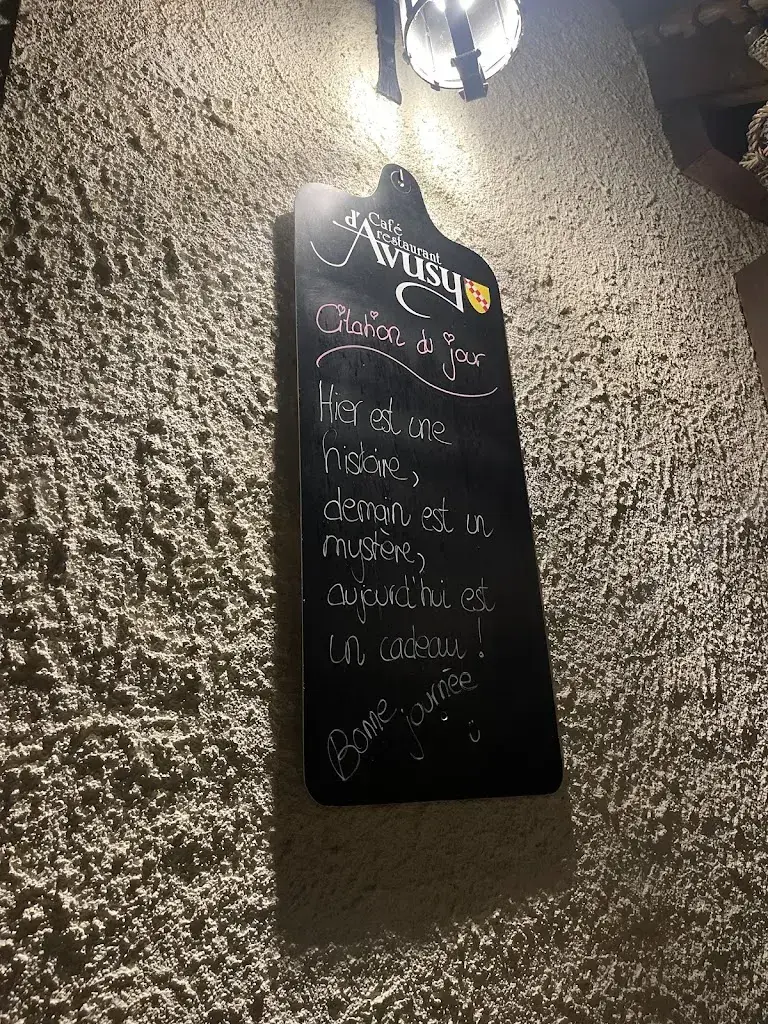 Café
d'restaurant
Avusy
Citation du jour
Hier est une
histoire,
demain est un
mystère,
aujourd'hui est
un cadeau !
Bonne journée